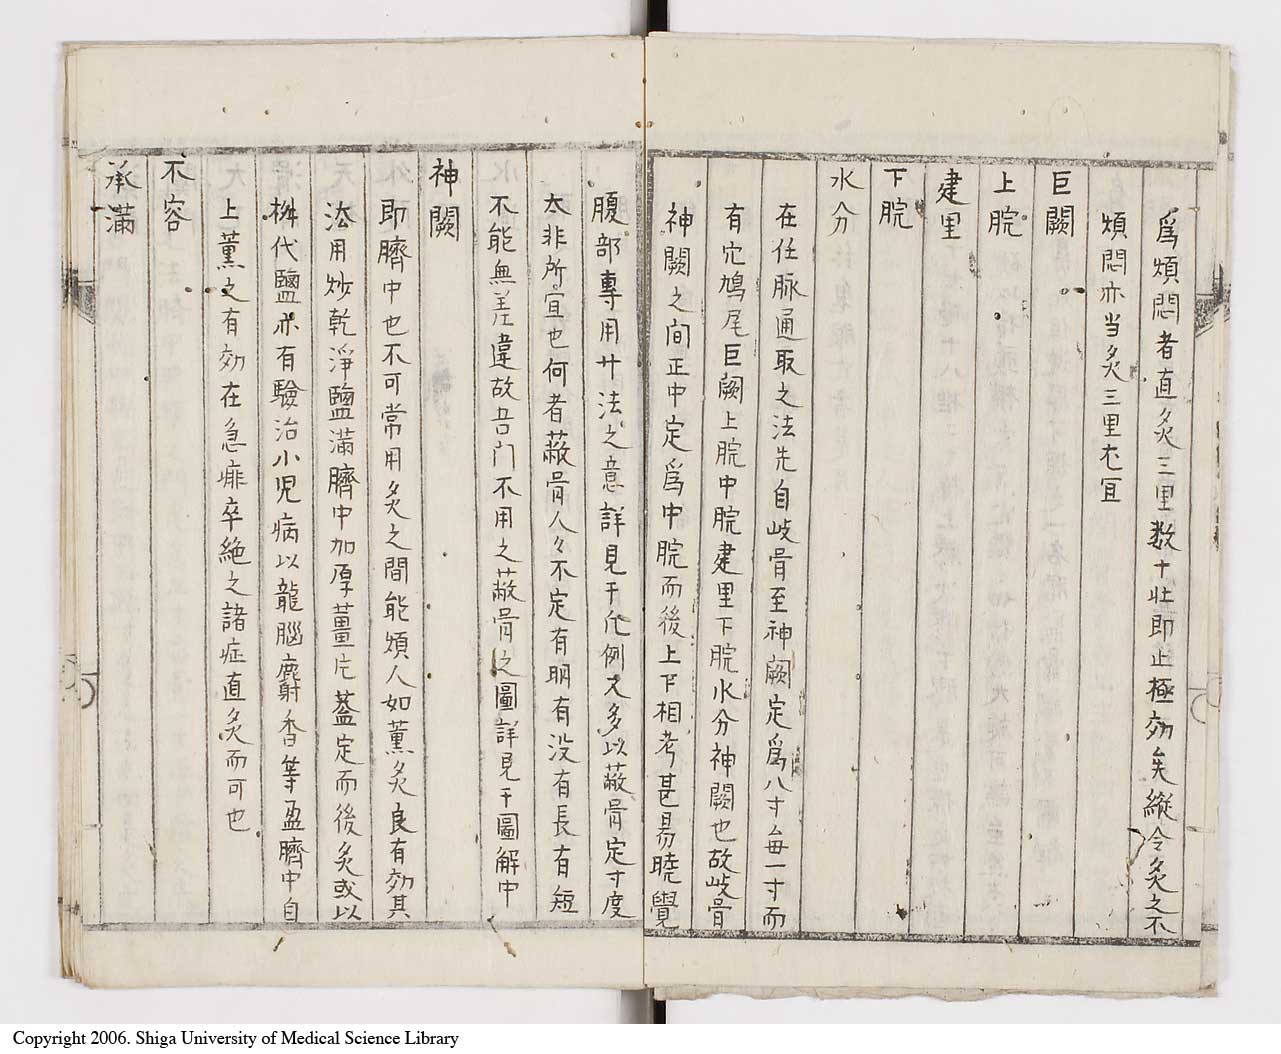 爲煩悶者直灸三里数十壮即止極効矣縱令灸之不
煩悶亦当灸三里尤宜
巨闕
上脘
建里
下脘
水分
在任脉通取之法先自岐骨至神闕定爲八寸毎一寸而
有穴鳩尾巨闕上脘中脘建里下脘水分神闕也故岐骨
神闕之间正中定爲中脘而後上下相考甚易曉覺
腹部専用此法之意詳見于凢例又多以蔽骨定寸度
太非所宜也何者蔽骨人々不定有明有没有長有短
不能無差違故吾门不用之蔽骨之圖詳見于圖解中
神闕
即臍中也不可常用灸之間能煩人如薫灸良有効其
法用炒乾淨鹽満臍中加厚薑片蓋定而後灸或以
代鹽亦有驗治小児病以龍腦麝香等盈臍中自
上薫之有効在急癨卒絶之諸症直灸而可也
不容
承満
Copyright 2006. Shiga University of Medical Science Library